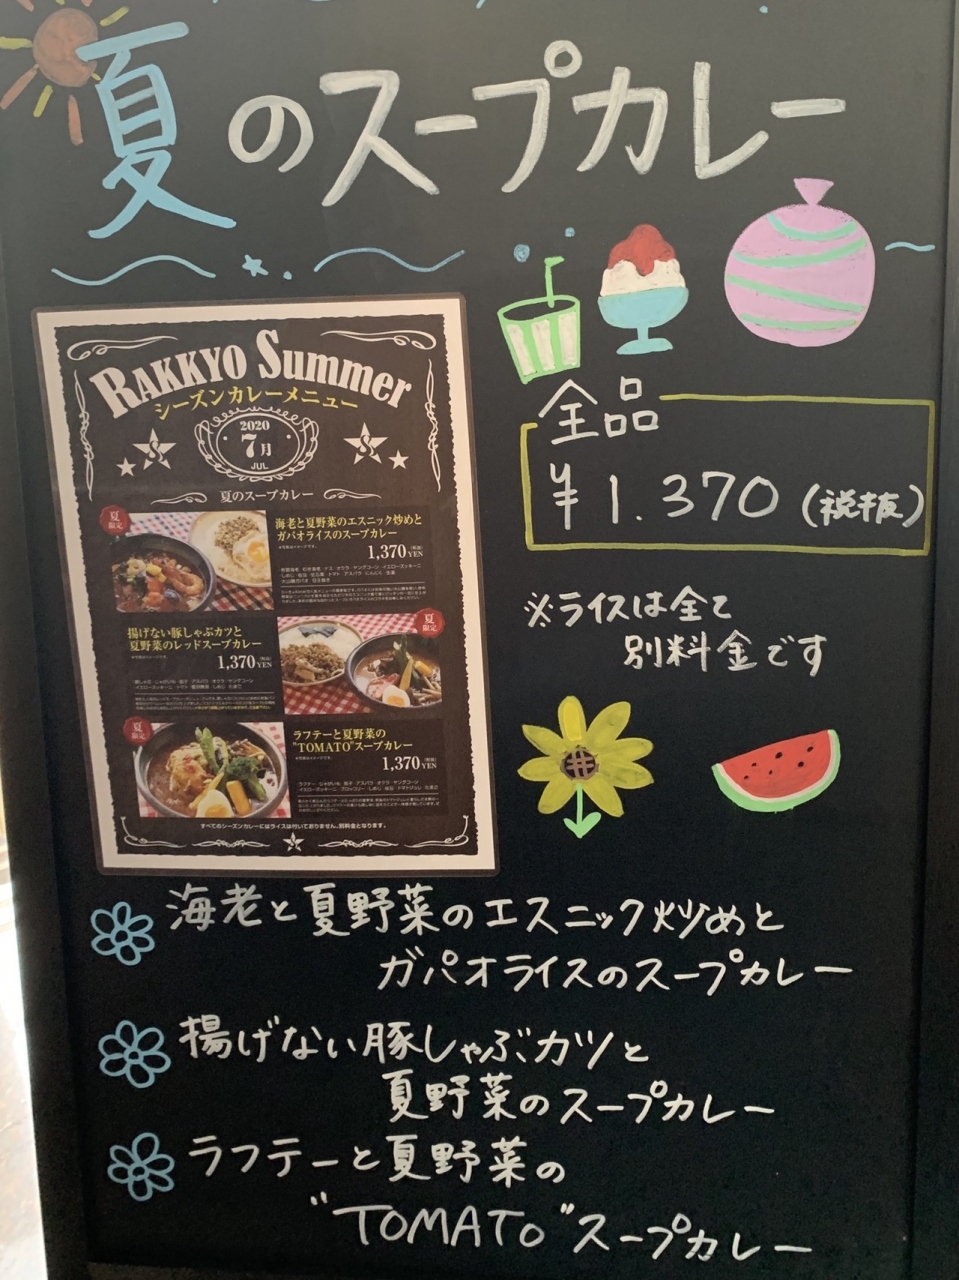 夏のスープカレー
RAKKYO Summer
シーズンカレーメニュー
2020
7月
JUL
夏のスープカレー
夏
限定
海老と夏野菜のエスニック炒めと
ガパオライスのスープカレー
1,370 YEN
揚げない豚しゃぶカツと
夏野菜のレッドスープカレー
1,370 YEN
夏
限定
夏
限定
ラフテーと夏野菜の
"TOMATO"スープカレー
1,370 YEN
すべてのシーズンカレーにはライスは付いておりません。別料金となります。
全品
¥1.370(税抜)
※ライスは全て
別料金です
海老と夏野菜のエスニック炒めと
ガパオライスのスープカレー
揚げない豚しゃぶカツと
夏野菜のスープカレー
ラフテーと夏野菜の
"TOMATO"スープカレー